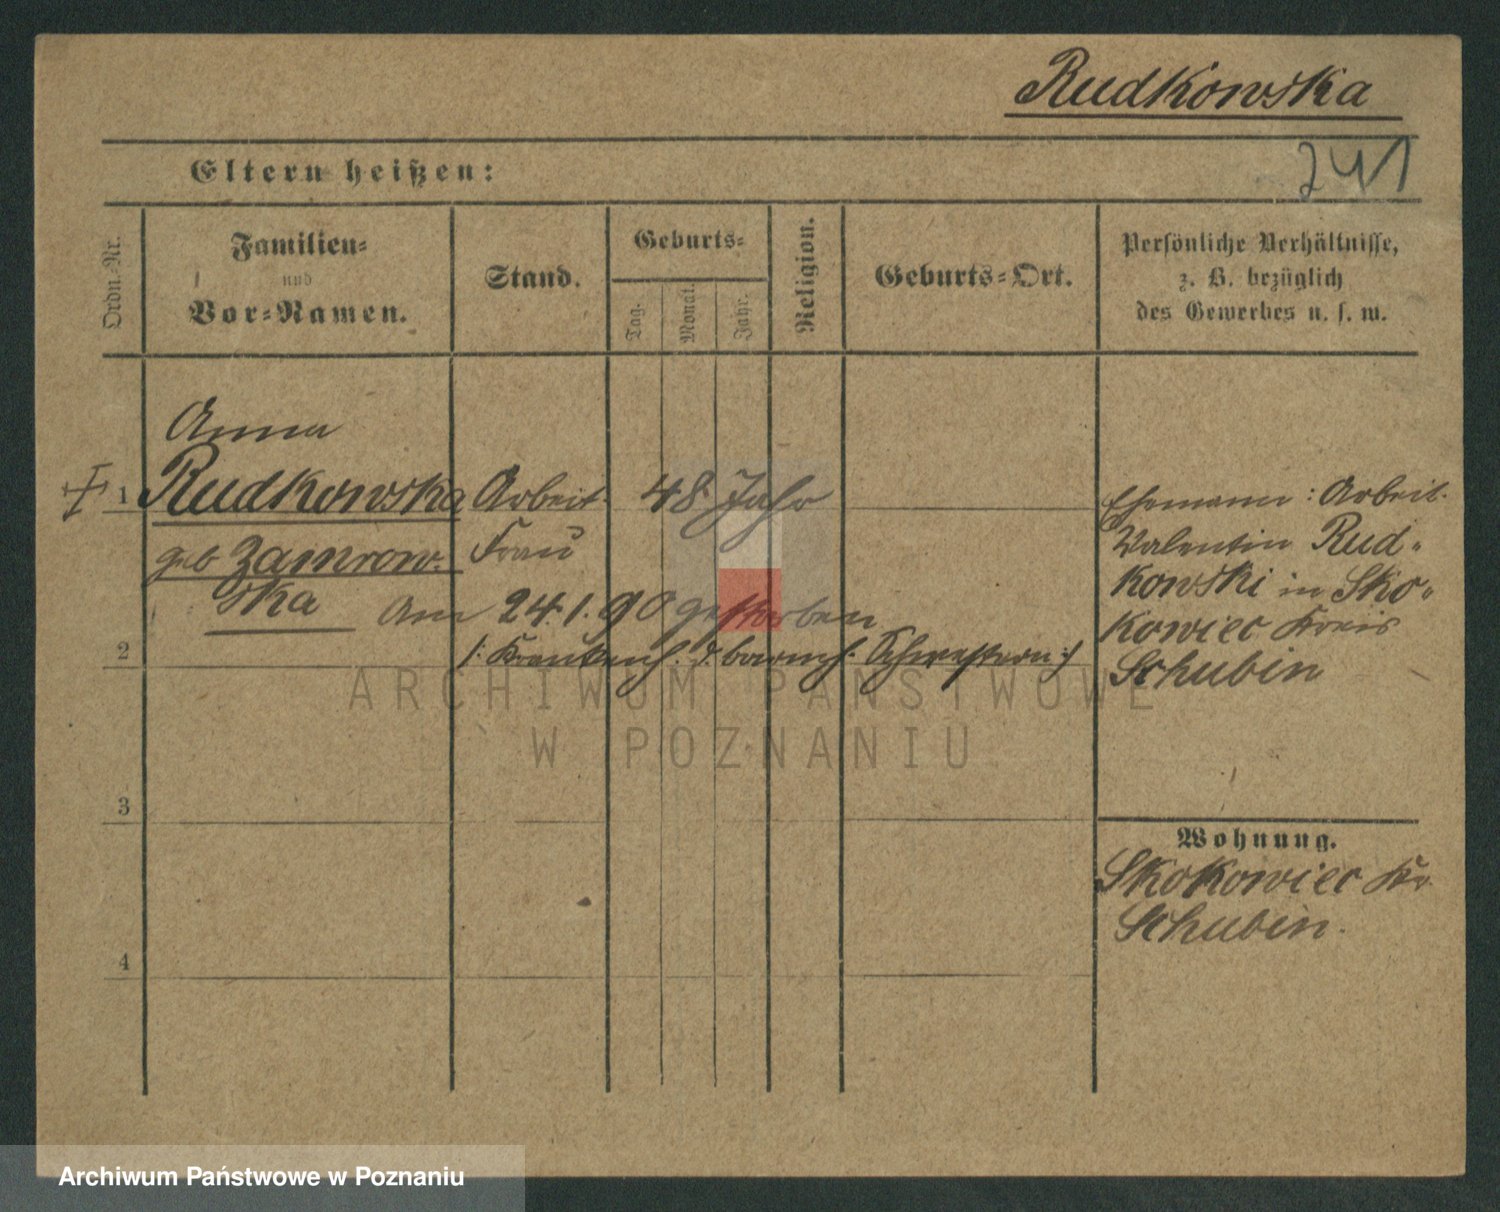 Rudkowska
241
Eltern heißen:
Ordn.-Nr.
Familien-
und
Vor-Namen.
Stand.
Geburts-
Tag.
Monat.
Jahr.
Religion.
Geburts-Ort.
Persönliche Verhältnisse,
z. B. bezüglich
des Gewerbes u. s. w.
Anna
1 Rudkowska Arbeit. 48 Jahr
geb Zamrow- Frau
ska am 24.1.90 gestorben
/: Krankenh. d. barmh. Schwestern :/
Ehemann: Arbeit.
Valentin Rud-
kowski in Sko-
kowiec Kreis
Schubin
2
3
4
Wohnung.
Skokowiec Kr.
Schubin.
ARCHIWUM PAŃSTWOWE
W POZNANIU
Archiwum Państwowe w Poznaniu